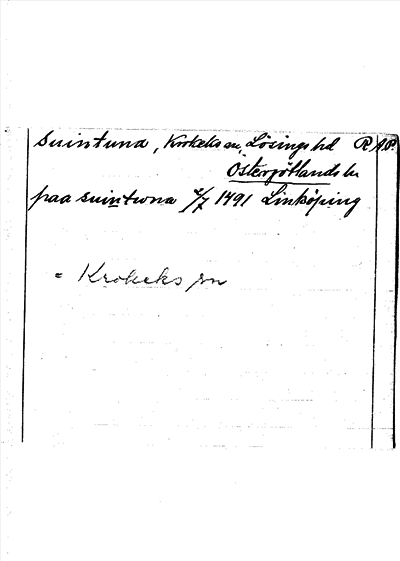 Suintuna, Krokeks sn, Lösings hd R.A.P.
Östergötlands ln
paa suintwna 2/7 1491 Linköping
= Krokeks sn